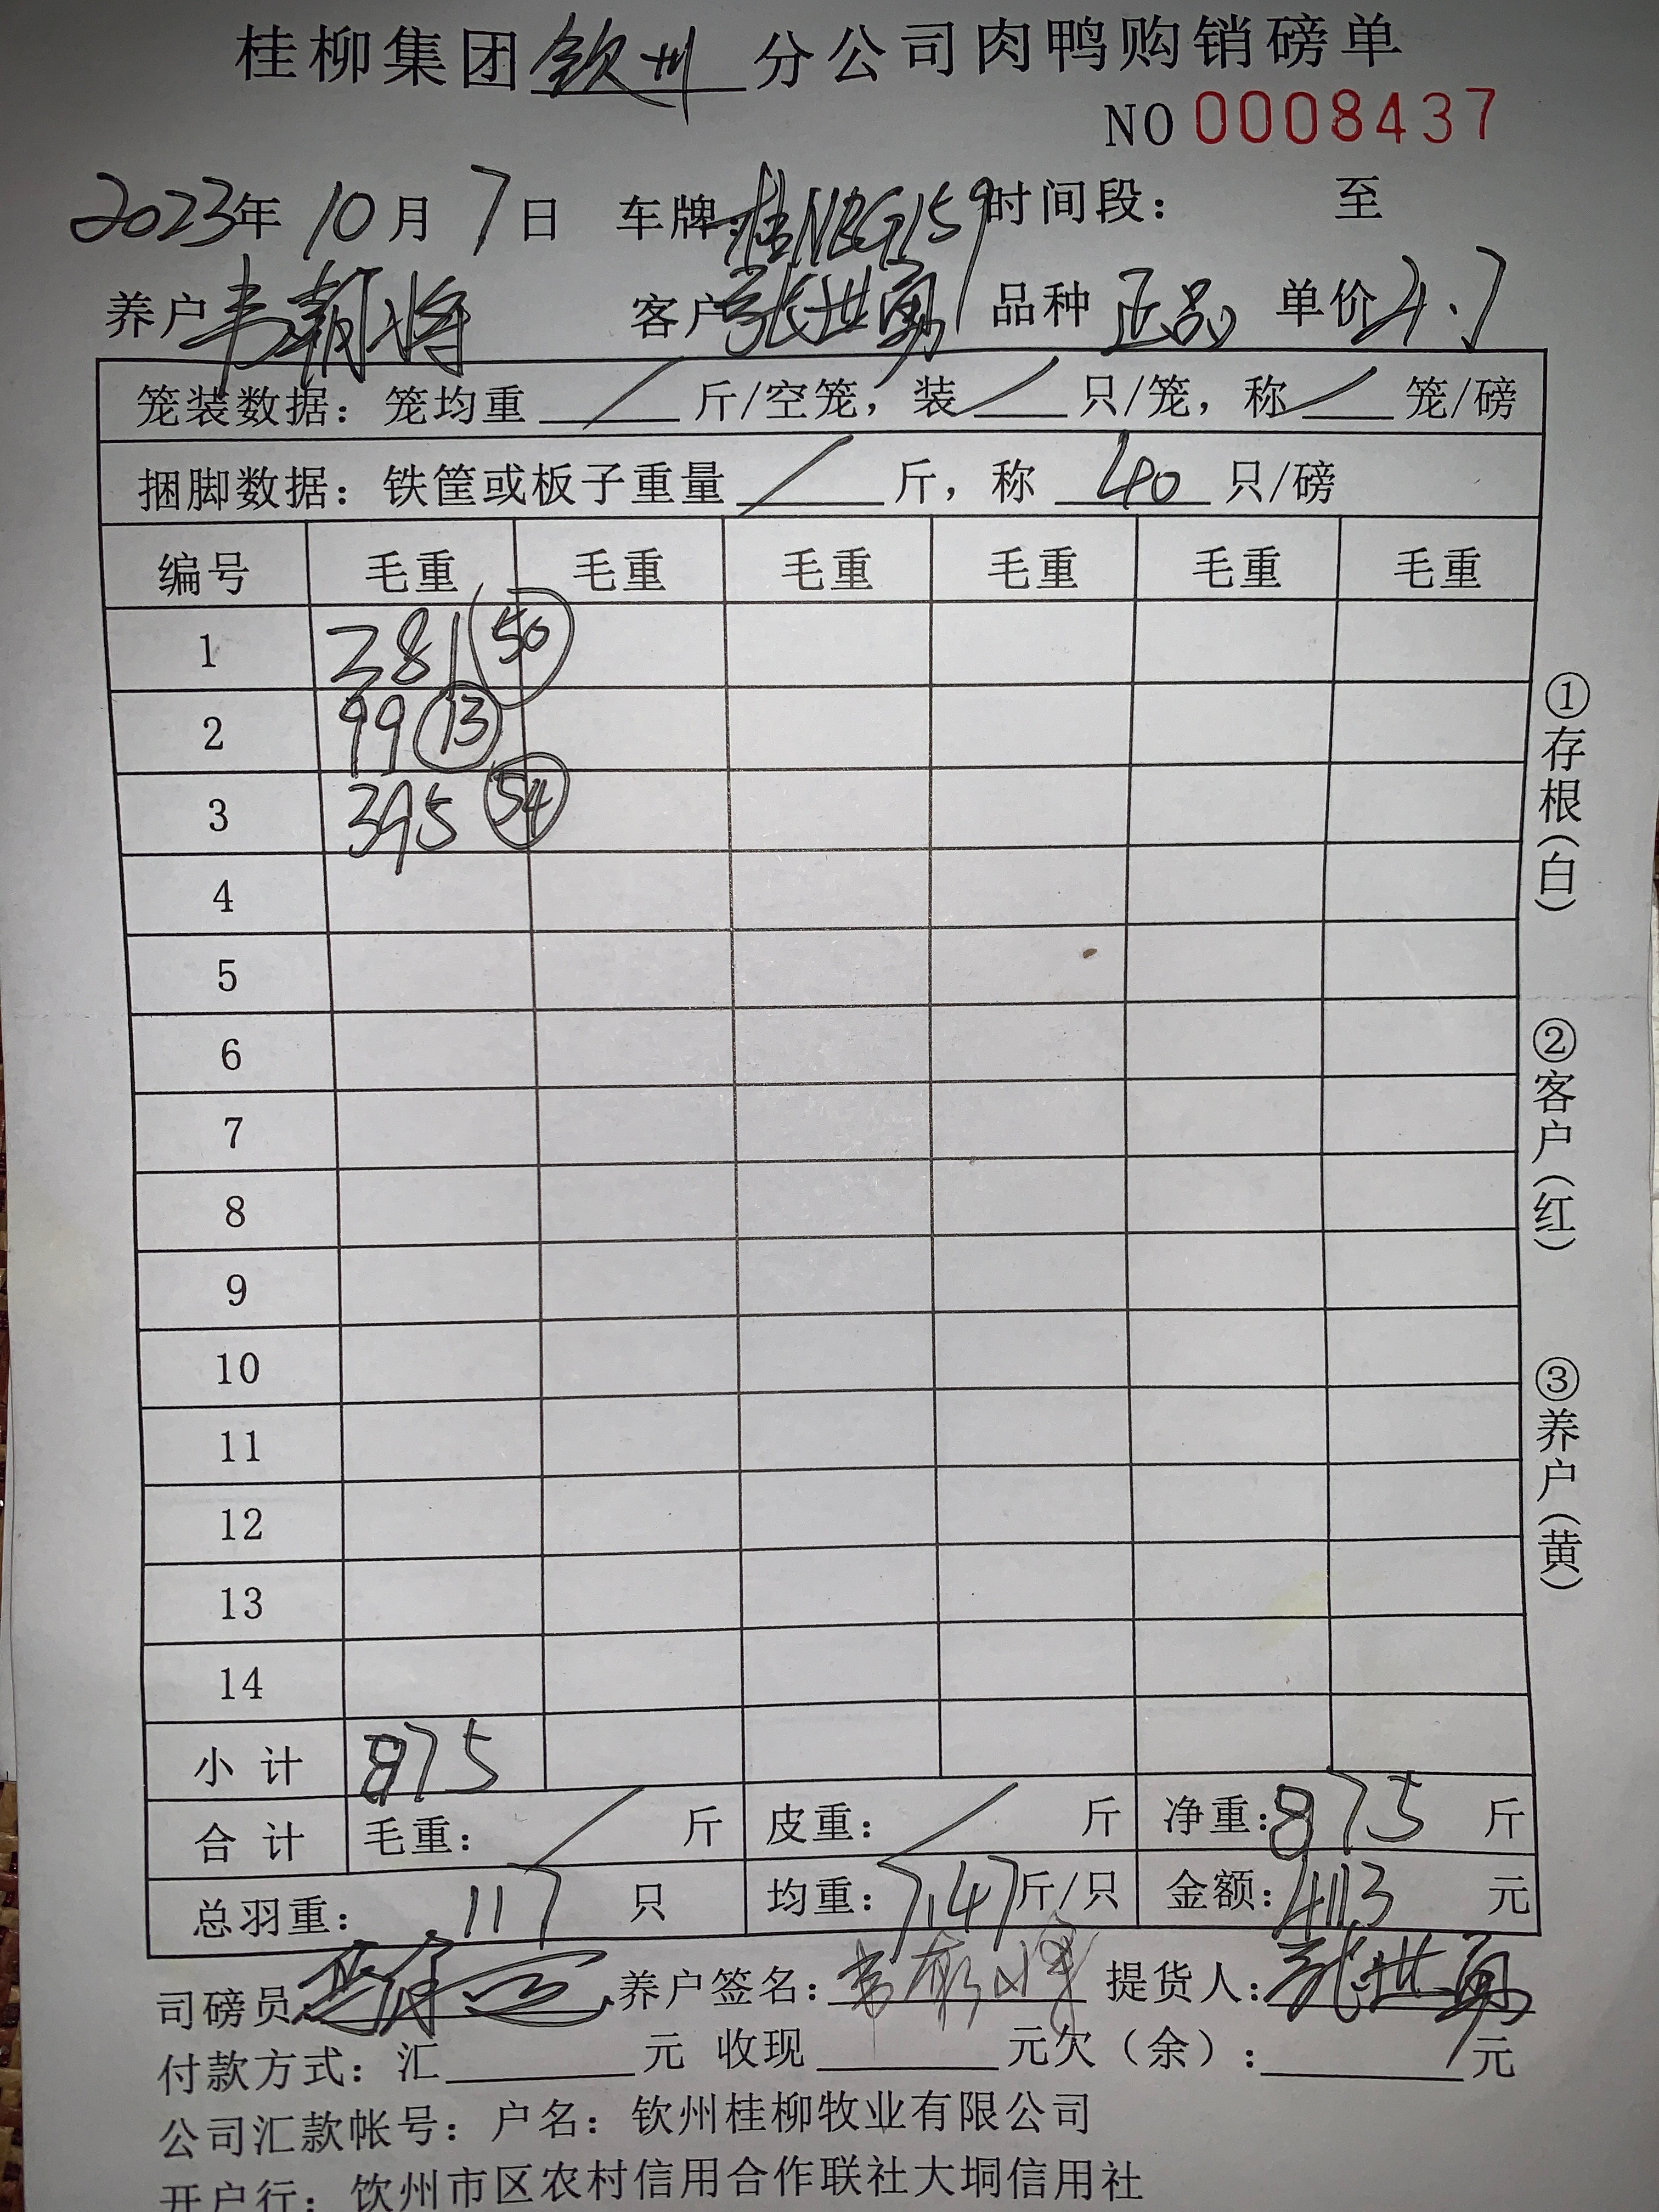 桂柳集团钦州分公司肉鸭购销磅单
NO 0008437
2023年10月7日 车牌:桂NBG159 时间段: 至
养户 韦朝将 客户 张世勇 品种 正品 单价 4.7
笼装数据: 笼均重 / 斤/空笼, 装 / 只/笼, 称 / 笼/磅
捆脚数据: 铁筐或板子重量 / 斤, 称 40 只/磅
编号 毛重 毛重 毛重 毛重 毛重 毛重
1 381 50
2 99 13
3 395 54
4
5
6
7
8
9
10
11
12
13
14
小计 875
合计 毛重: / 斤 皮重: / 斤 净重: 875 斤
总羽重: 117 只 均重: 7.47 斤/只 金额: 4113 元
司磅员 养户签名: 提货人: 张世勇
付款方式: 汇 元 收现 元欠(余): 元
公司汇款帐号: 户名: 钦州桂柳牧业有限公司
开户行: 钦州市区农村信用合作联社大垌信用社
①存根(白)
②客户(红)
③养户(黄)